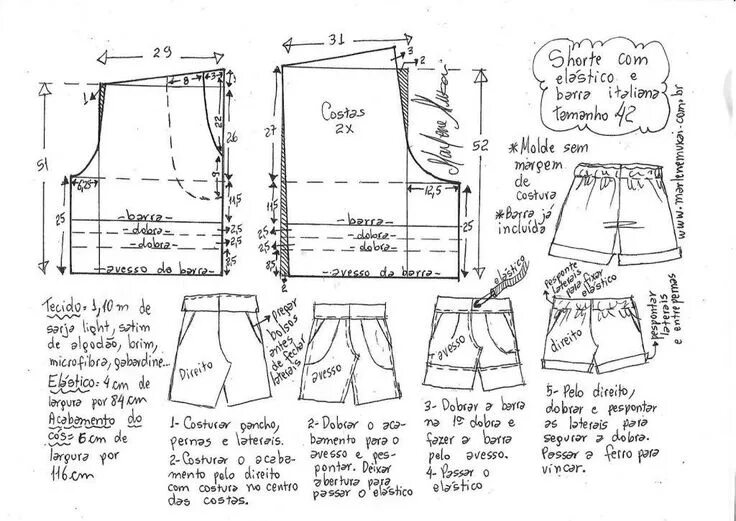 29
8
3
1
51
6,25
25
22
9
26
11,5
2,5
2,5
-barra-
-dobra-
-dobra-
avesso da barra-
31
3
2
Costas
2X
27
52
12,5
11,5
25
2,5
2,5
8,5
25
-barra-
-dobra-
-dobra-
-avesso da barra-
2
Marlene Mukai
Shorte com
elástico e
barra italiana
tamanho 42
* Molde sem
margem
de
costura
* Barra já
incluída
www.marlenemukai.com.br
Tecido= 1,10 m de
sarja light, satim
de algodão, brim,
microfibra, gabardine...
Elástico= 4 cm de
largura por 84 cm
Acabamento do
cós= 6 cm de
largura por
116 cm
Direito
pregar
bolsos
antes
de fechar
laterais
1- Costurar gancho,
pernas e laterais.
2- Costurar o acaba-
mento pelo direito
com costura no centro
das costas.
avesso
2- Dobrar o aca-
bamento para o
avesso e pes-
pontar. Deixar
abertura para
passar o elástico
elástico
avesso
3- Dobrar a barra
na 1º dobra e
fazer a barra
pelo avesso.
4- Passar o
elástico
pesponte
laterais
para fixar
elástico
direito
pespontar
laterais
e entrepernas
5- Pelo direito,
dobrar e pespontar
as laterais para
segurar a dobra.
Passar a ferro para
vincar.